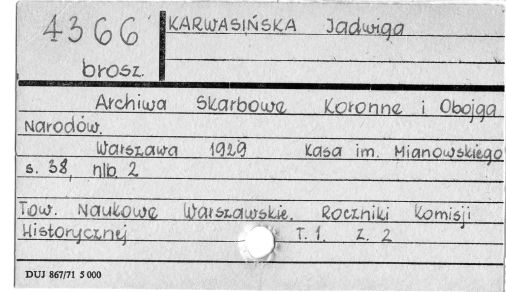 4366
KARWASIŃSKA Jadwiga
brosz.
Archiwa Skarbowe Koronne i Obojga
Narodów.
Warszawa 1929 Kasa im. Mianowskiego
s. 38, nlb. 2
Tow. Naukowe Warszawskie. Roczniki Komisji
Historycznej T. 1. Z. 2
DUJ 867/71 5 000